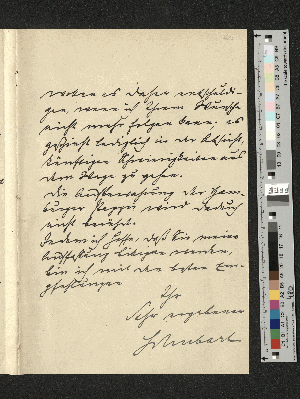 wollen es daher entschuldi-
gen, wenn ich Ihrem Wunsche
nicht mehr folgen kann. es
geschieht lediglich in der Absicht,
künftigen Schwierigkeiten aus
dem Wege zu gehen.
Die Aufbewahrung der Ham-
burger Mappe wird dadurch
nicht berührt.
Indem ich hoffe, daß Sie meine
Auffassung billigen werden,
bin ich mit den besten Em-
pfehlungen
Ihr
Sehr ergebener
Schubart